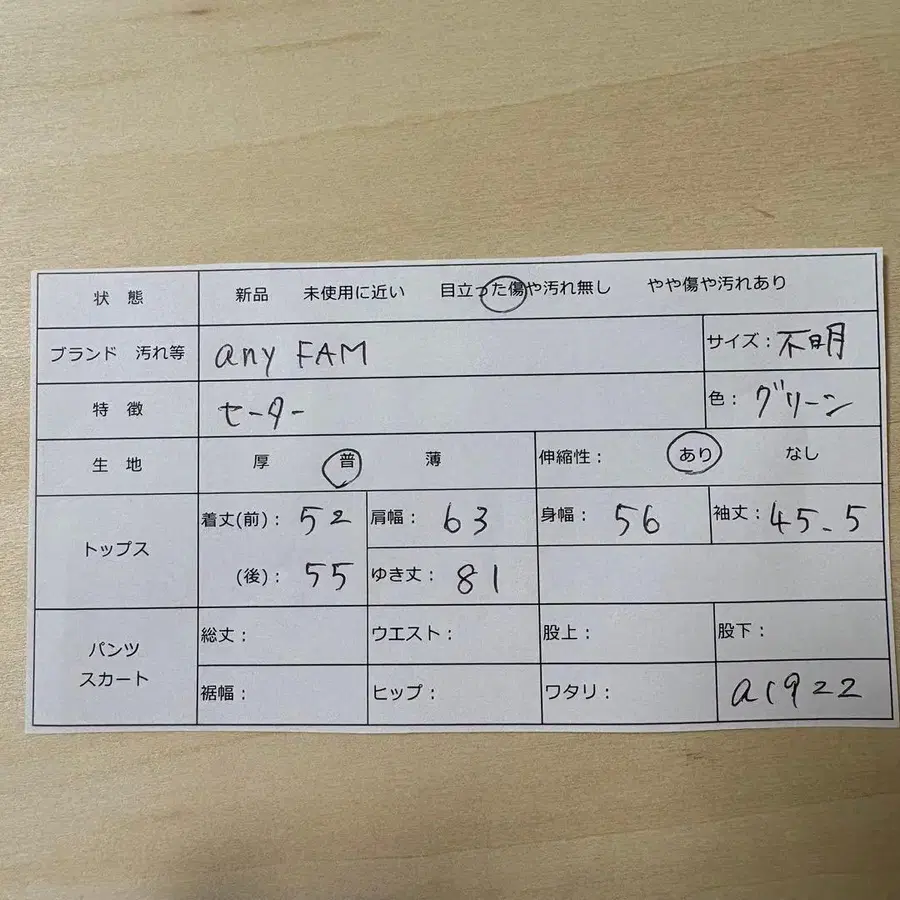 状 態 新品 未使用に近い 目立った傷や汚れ無し やや傷や汚れあり
ブランド 汚れ等 any FAM サイズ：不明
特 徴 セーター 色：グリーン
生 地 厚 普 薄 伸縮性： あり なし
トップス 着丈(前)：52 肩幅：63 身幅：56 袖丈：45.5
(後)：55 ゆき丈：81
パンツ スカート 総丈： ウエスト： 股上： 股下：
裾幅： ヒップ： ワタリ： a1922